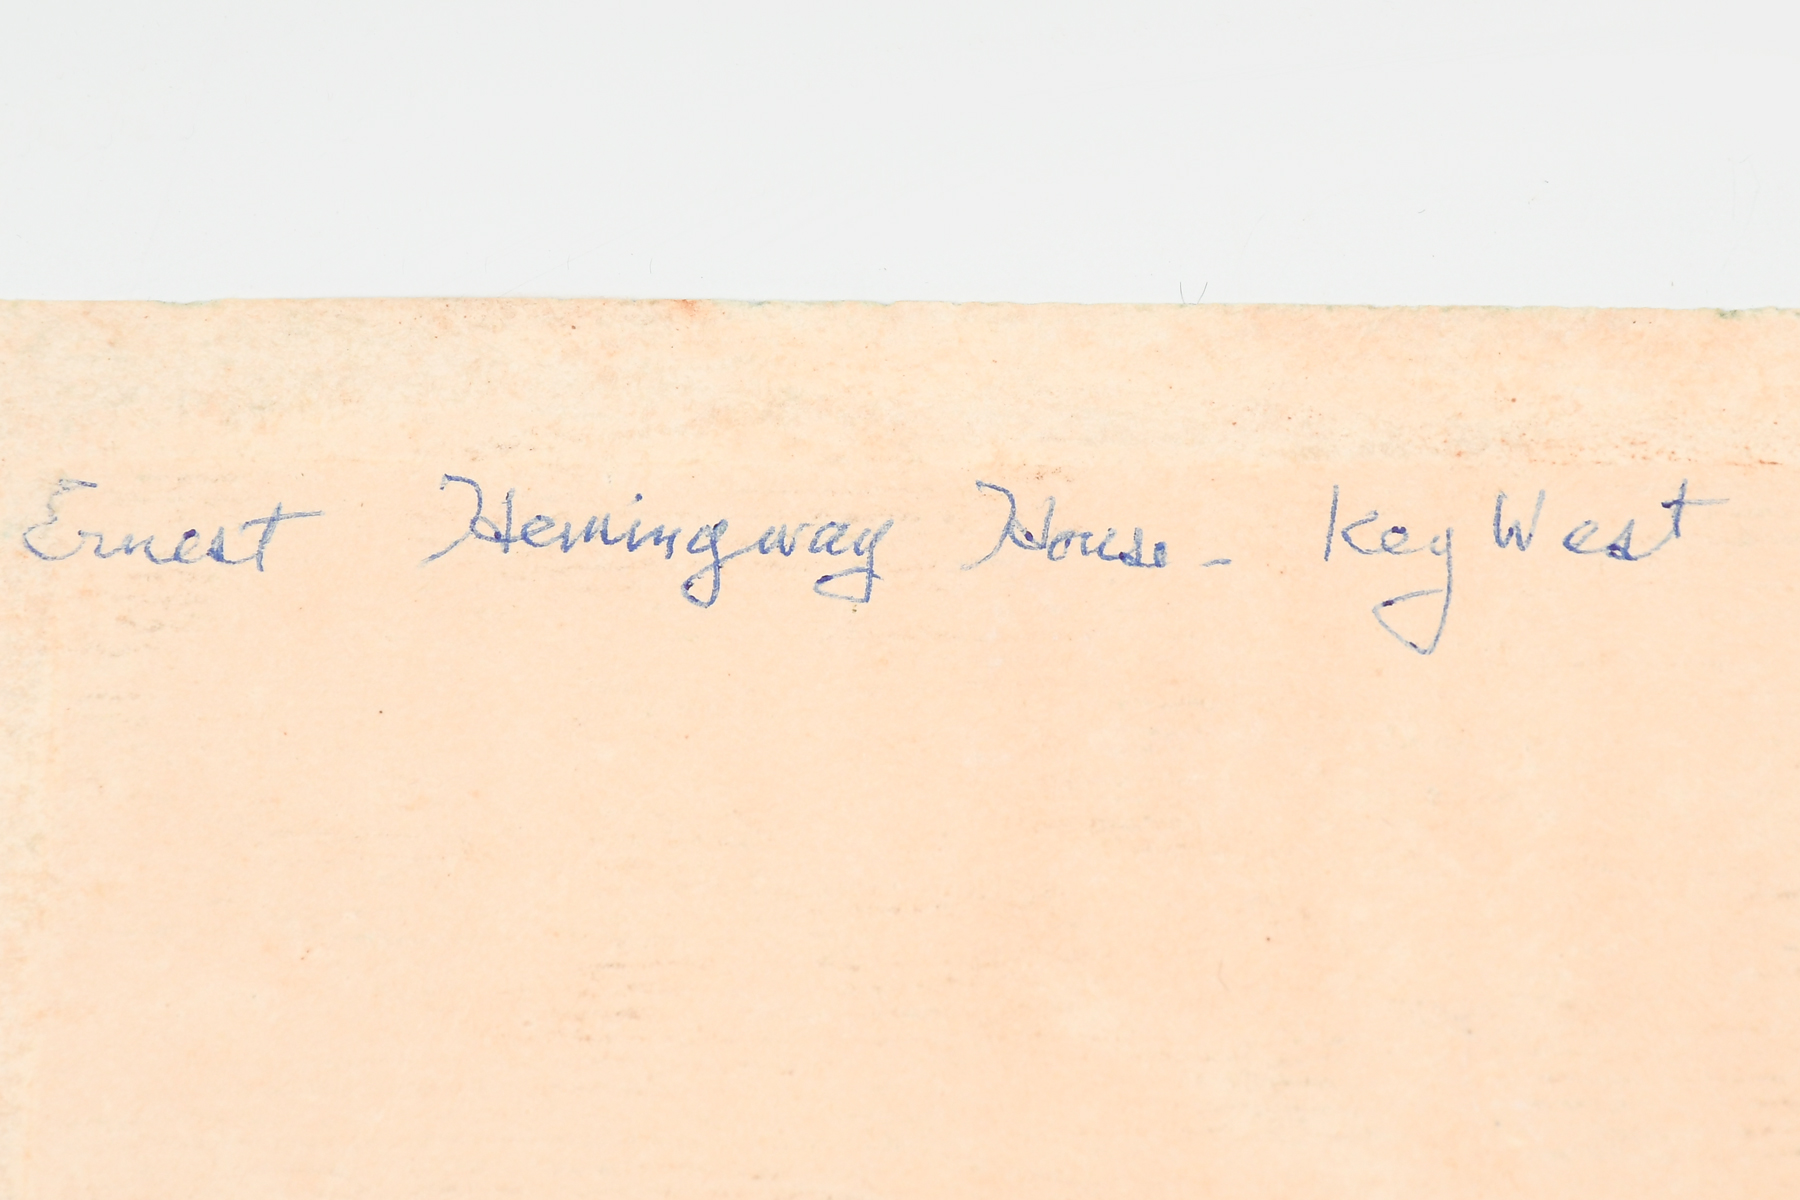 Ernest Hemingway House - Key West